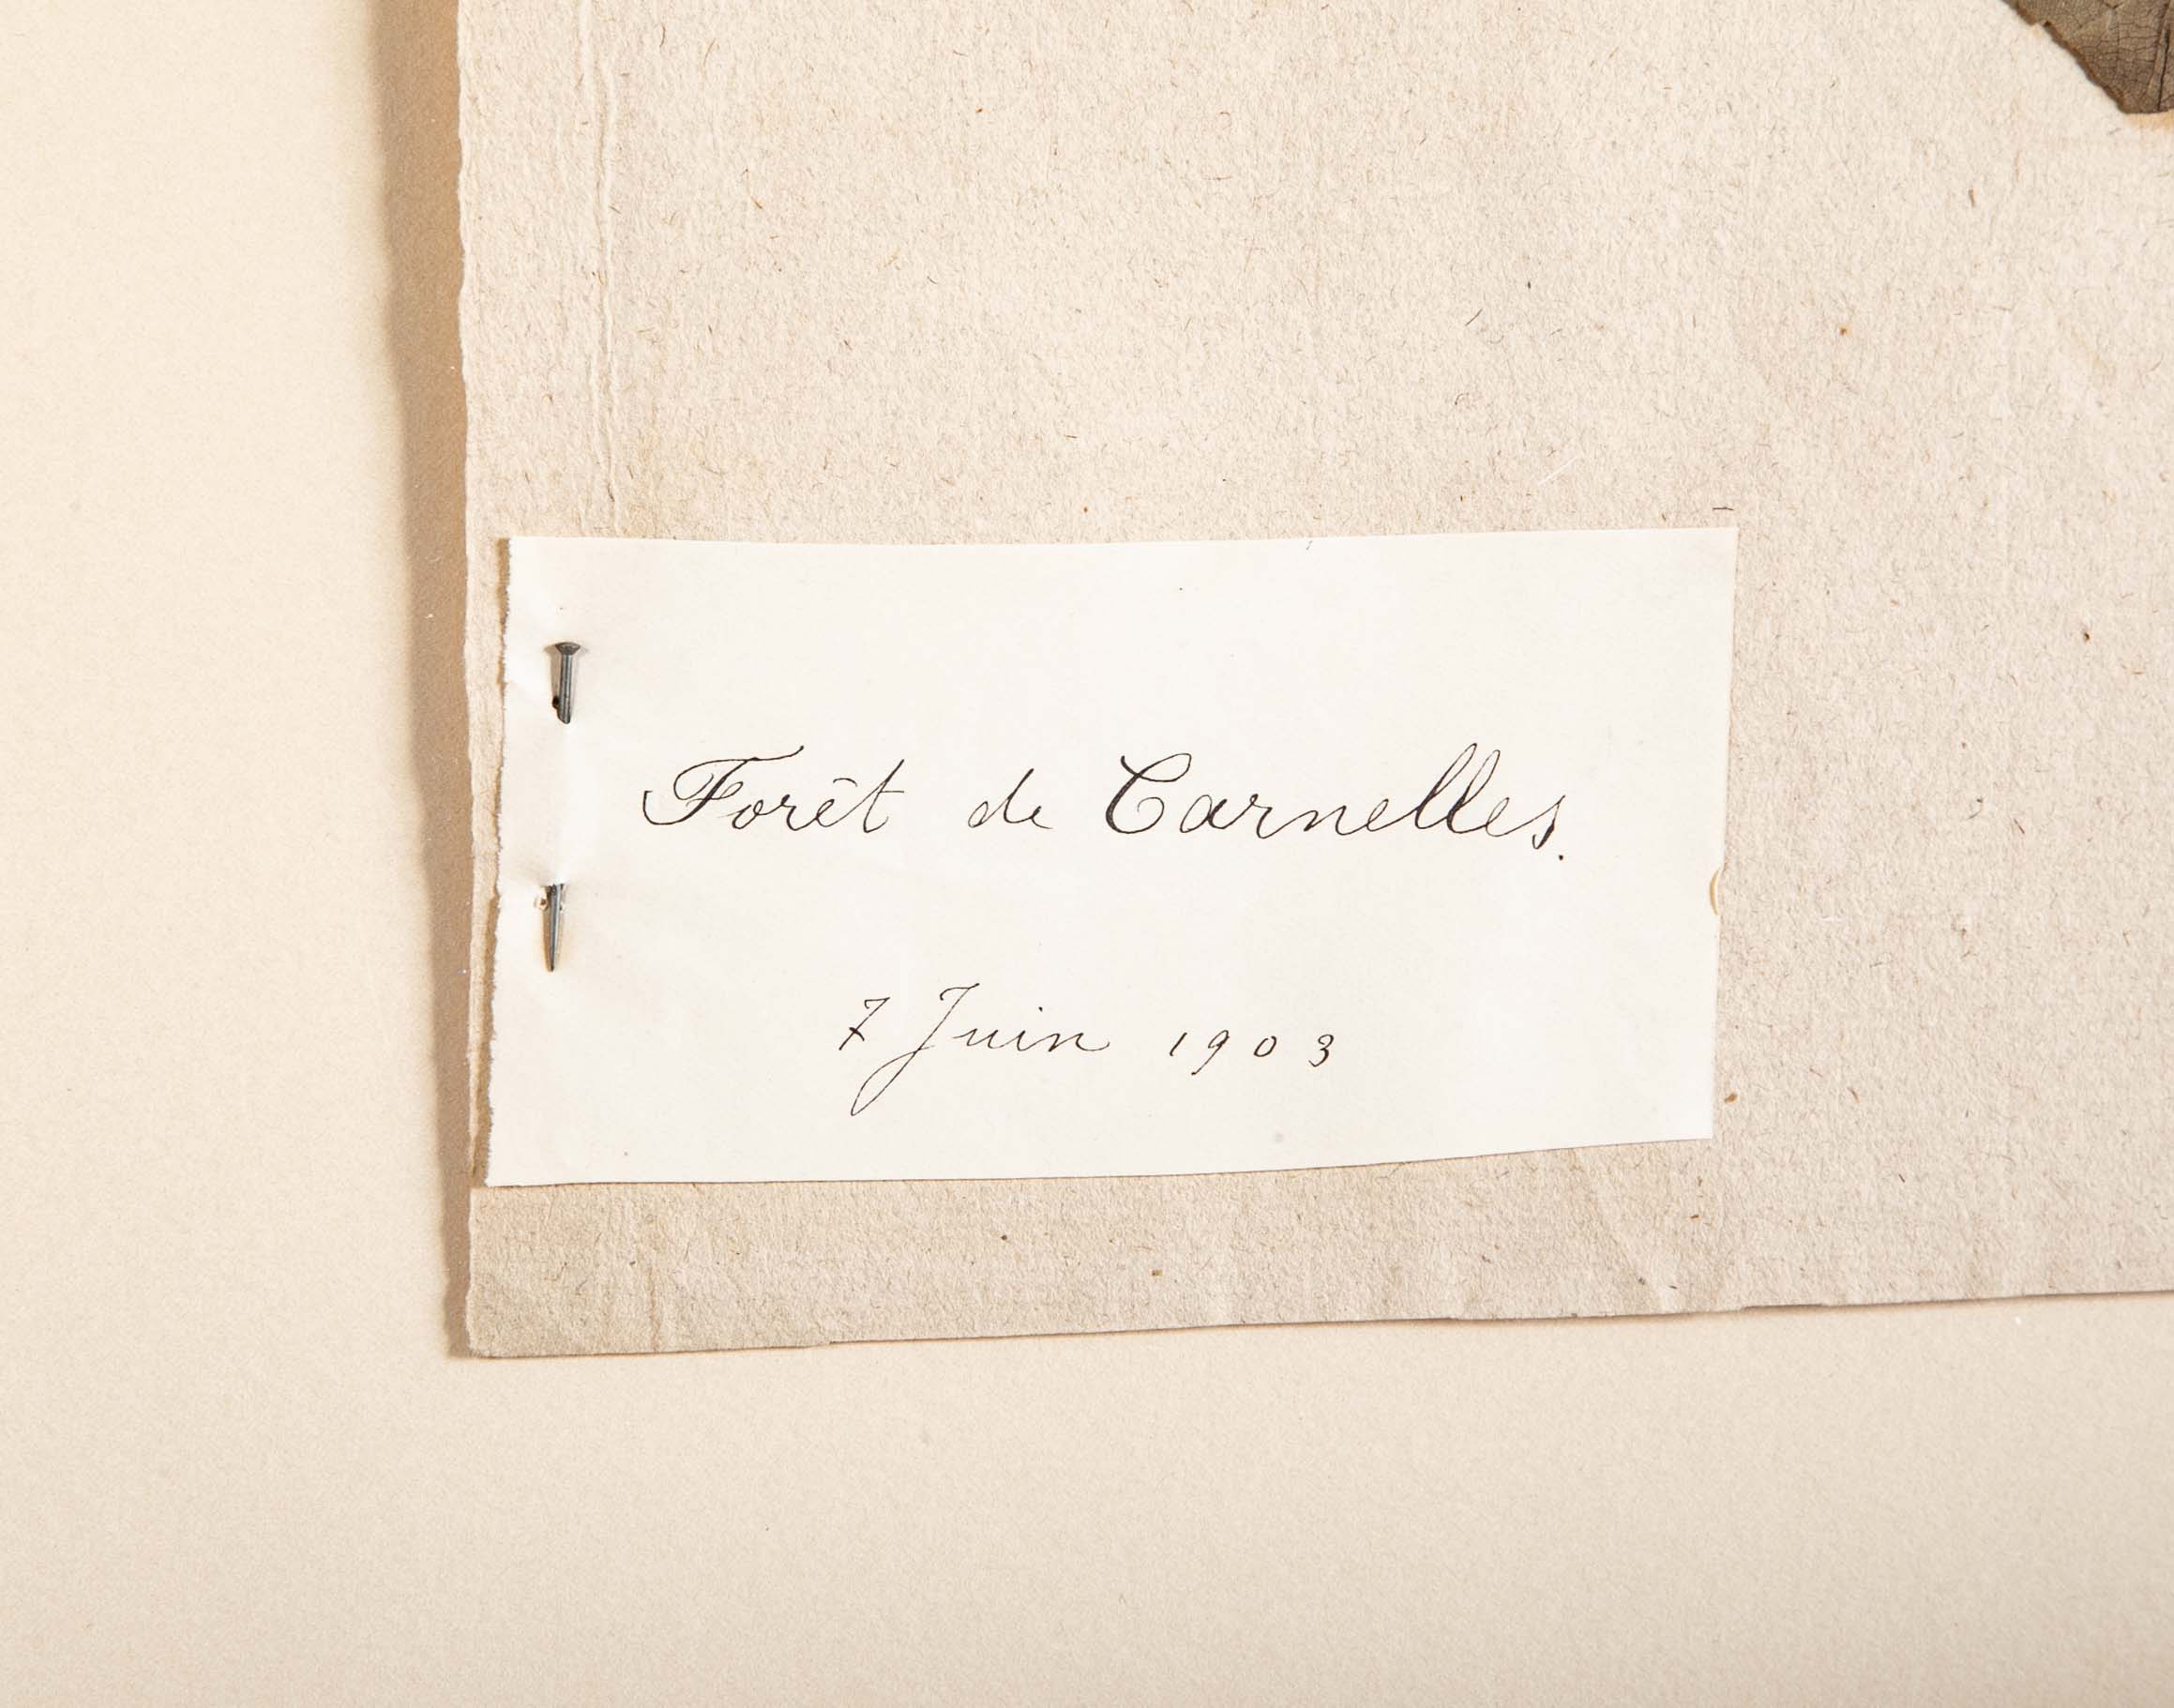 Forêt de Carnelles.
7 Juin 1903